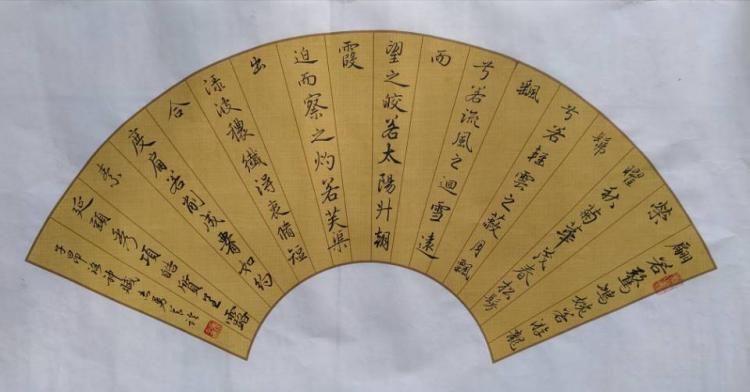 翩若驚鴻婉若游龍
榮
曜秋菊華茂春松髣
髴
兮若輕雲之蔽月飄
飖
兮若流風之迴雪遠
而
望之皎若太陽升朝
霞
迫而察之灼若芙渠
出
渌波穠纖得衷脩短
合
度肩若削成腰如約
素
延頸秀項皓質呈露
子昂洛神賦